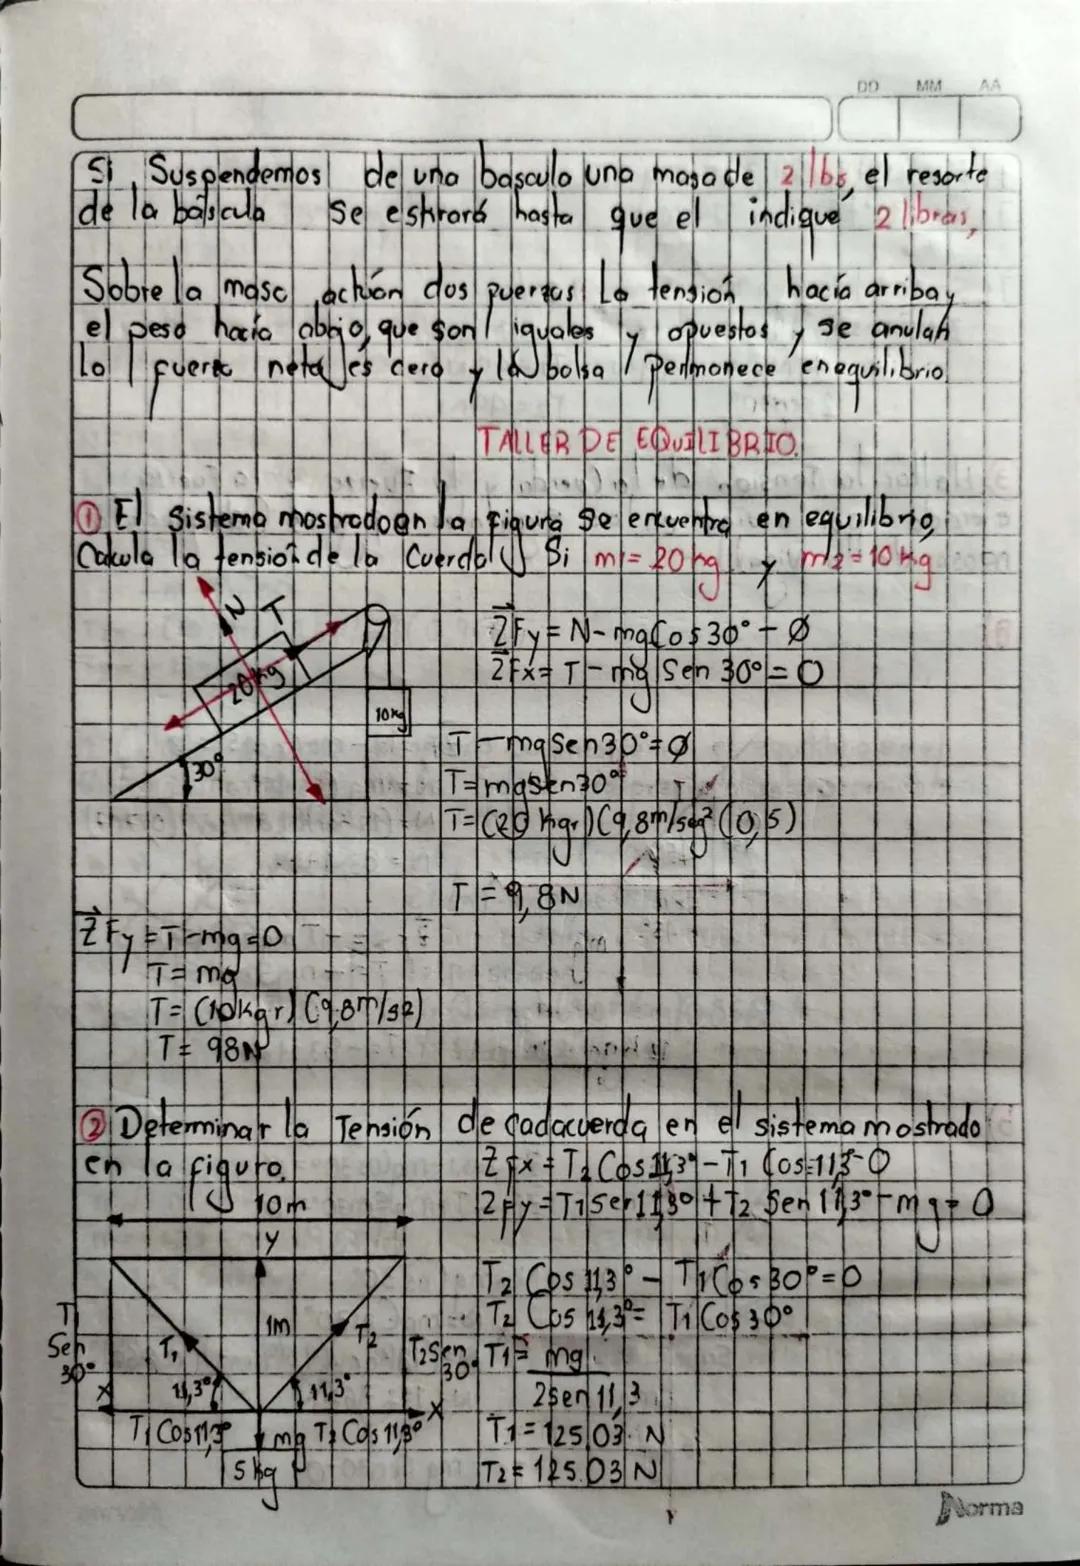 DD MM AA
Si Suspendemos de una basculo una masa de 2 lbs, el resorte
de la báscula Se estirará hasta que el indique 2 libras,
Sobre la masa actúan dos fuerzas La tensión hacia arriba y
el peso hacia abajo, que son iguales y opuestos y se anulan
la fuerza neta es cero y la bolsa permanece en equilibrio
TALLER DE EQUILIBRIO.
① El sistema mostrado en la figura se encuentra en equilibrio,
Calcula la tensión de la Cuerda Si m1= 20 kg y m2=10 kg
N T
20kg
10kg
30°
ΣFy= N- mgCos30° - Ø
ΣFx= T - mg Sen 30° = 0
T - mgSen30°= Ø
T= mgsen30°
T= (20 kgr) (9,8m/seg² (0,5)
T = 9,8N
ΣFy =T-mg=0
T= mg
T= (10kgr) (9,8m/s2)
T= 98N
② Determinar la Tensión de cada cuerda en el sistema mostrado
en la figura.
ΣFx = T2 Cos 11,3° - T1 Cos 11,3 - 0
ΣFy = T1Sen11,3° + T2 Sen 11,3° - mg = 0
10m
y
1m
T1 T2
T Sen 30°
T2Sen 30°
11,3° 11,3°
x x
T1 Cos11,3° mg T2 Cos 11,3°
5 kg
T2 Cos 11,3° - T1Cos30°=0
T2 Cos 11,3°= T1 Cos 30°
T1= mg
2sen 11,3
T1=125,03 N
T2= 125.03 N
Norma